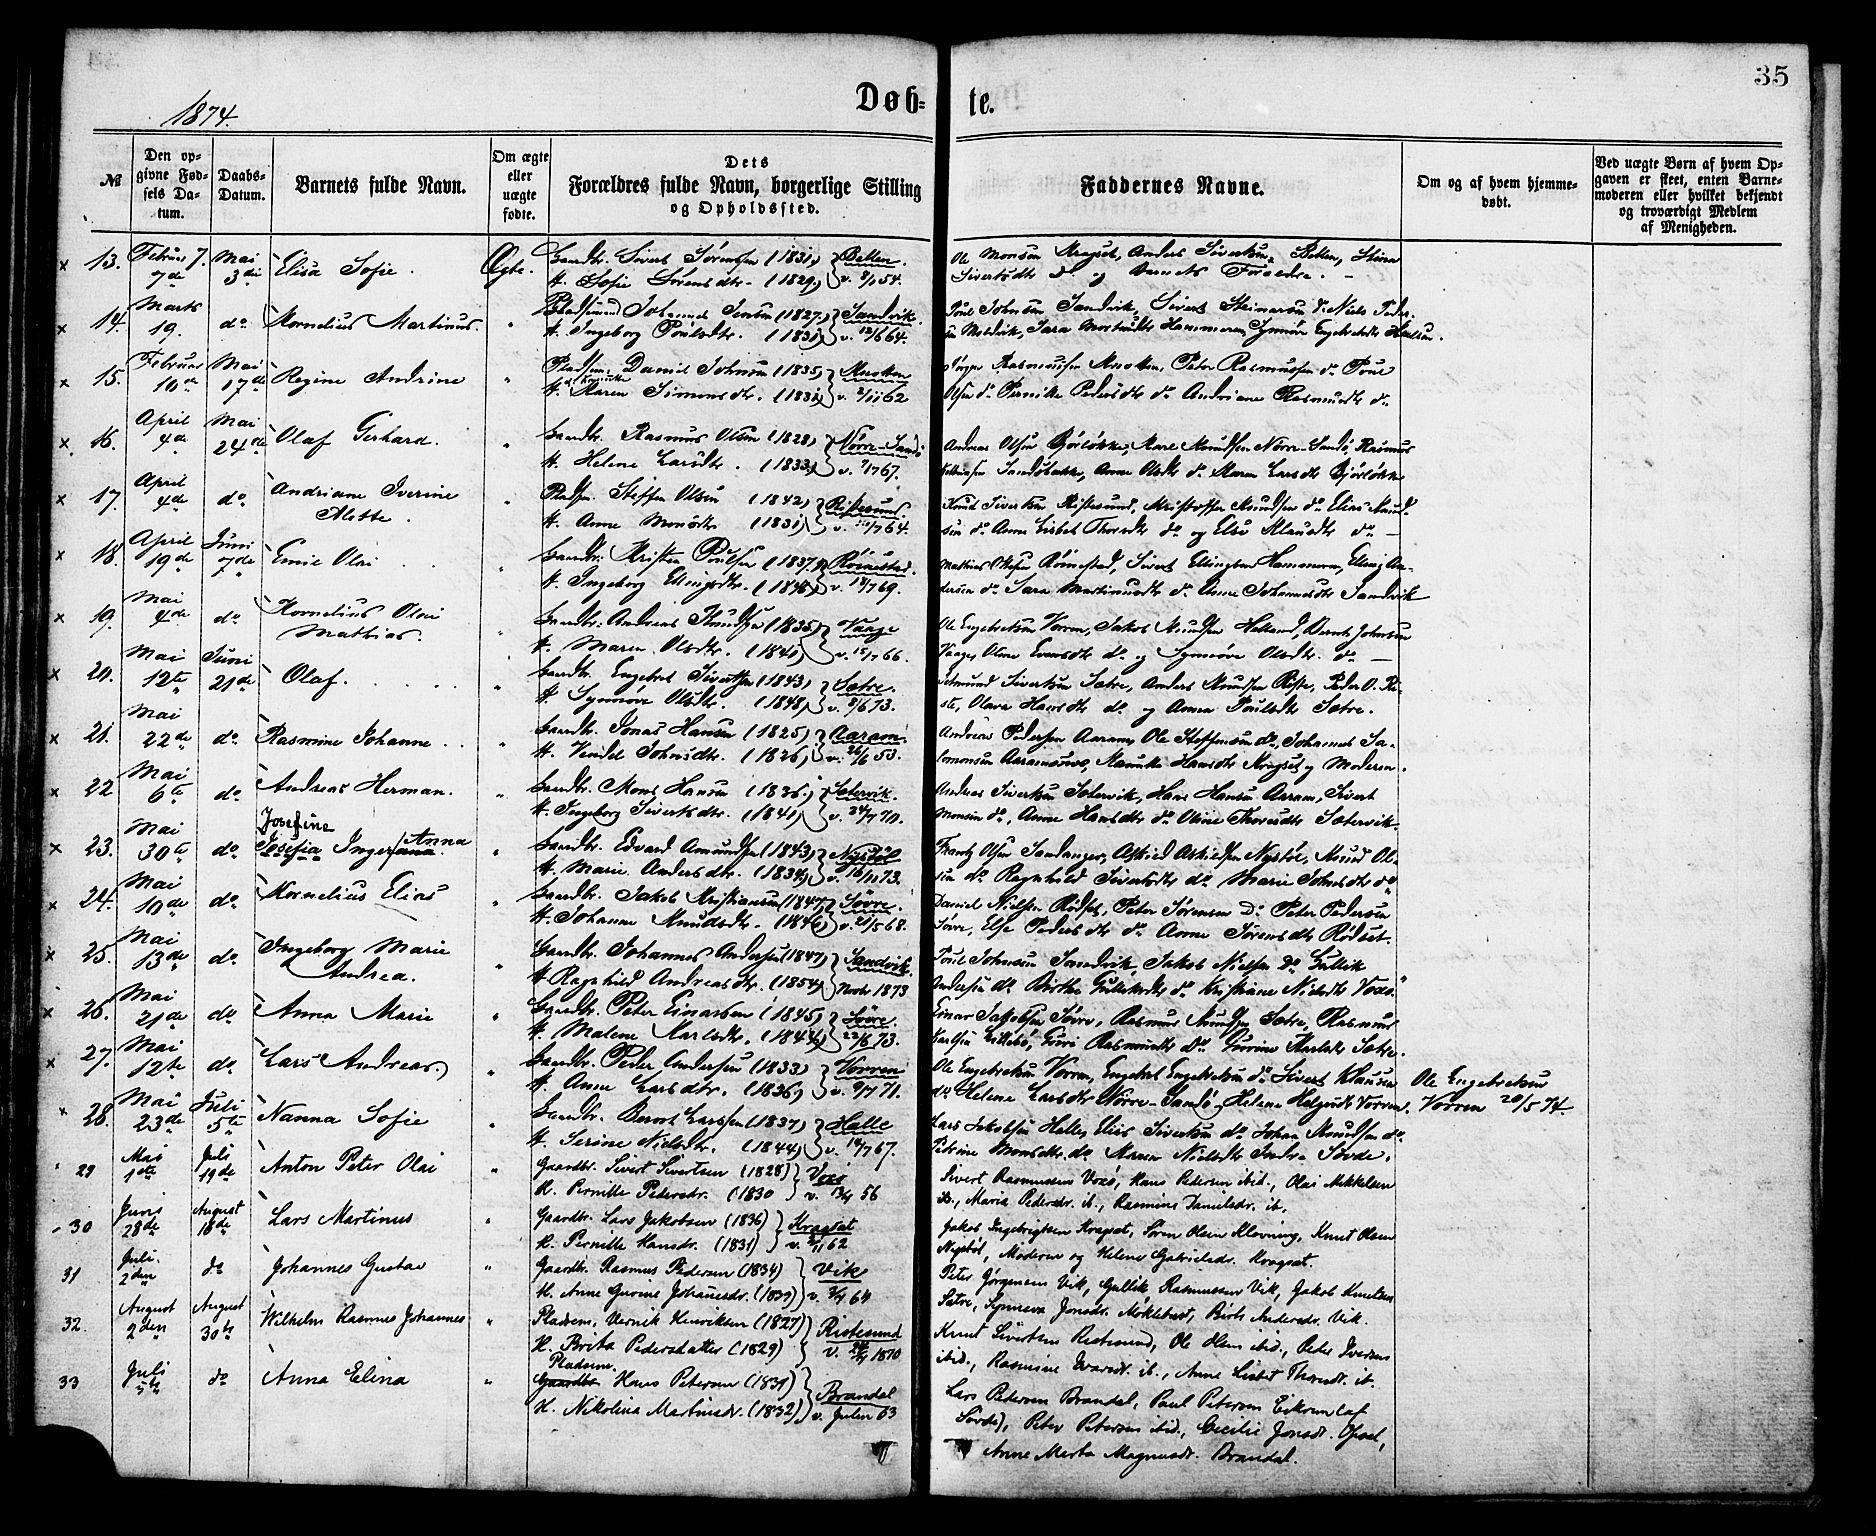 35
1874.
Døb- te.
№
Den opgivne Fødsels Datum.
Daabs-Datum.
Barnets fulde Navn.
Om ægte eller uægte fødte.
Dets Forældres fulde Navn, borgerlige Stilling og Opholdssted.
Faddernes Navne.
Om og af hvem hjemmedøbt.
Ved uægte Børn af hvem Opgaven er skeet, enten Barnemoderen eller hvilket bekjendt og troværdigt Medlem af Menigheden.
13. Februar 7. 7de Mai 3die Elisa Sofie. Ægte. Gaardbr. Sivert Sørensen (1831) Betten.
H. Sofie Sørensdtr. (1829) v. 8/1 54.
Ole Monsen Kragset, Anders Sivertsen Betten, Stina
Sivertsdtr do og Barnets Forældre.
14. Marts 19. do Kornelius Martinus. " Pladsmand Johannes Jensen (1827) Sandvik.
H. Ingeborg Poulsdtr. (1831) v. 12/6 64.
Poul Johnsen Sandvik, Sivert Steinarsen do Niels Peder-
15. Februar 10de Mai 17de Regine Andrine " Pladsm. Daniel Johnsen (1835) Mosken
H. Karen Simonsdtr. (1831) v. 2/11 62
Jørgen Rasmussen Mosken, Peter Rasmussen do Poul
Olsen do Pernille Pedersdtr do Andriane Rasmusdtr do
16. April 4de Mai 24de Olaf Gerhard. " Gaardbr. Rasmus Olsen (1828) Nørre-Sandø
H. Helene Larsdtr. (1833) v. 7/7 67.
Andreas Olsen Bjørløkke, Kare Knudsen Nørre-Sandø, Rasmus
17. April 4de do Andriane Iverine Alette. " Pladsm. Steffen Olsen (1842) Ristesund.
H. Anne Monsdtr (1831) v. /7 64.
Knud Sivertsen Ristesund, Kristoffer Knudsen do Elias Knud-
sen do Anne Lisbet Thoresdtr do og Else Klausdtr do
18. April 19de Juni 7de Emil Olai " Gaardbr. Kristen Poulsen (1837) Rønnestad.
H. Ingeborg Ellingsdtr. (1846) v. 18/7 69.
Mathias Olsen Rønnestad, Sivert Ellingsen Hammeren, Elling An-
dersen do Sara Martinusdtr do Anne Johannesdtr Sandvik
19. Mai 4de do Kornelius Olai Mathias. " Gaardbr. Andreas Knudsen (1835) Vaage
H. Maren Olsdtr. (1840) v. 15/7 66.
Ole Engebretsen Vorren, Jakob Knudsen Helland, Bernt Johnsen
Vaage, Oline Evensdtr do og Synnøve Olsdtr. do
20. Mai 12te Juni 21de Olaf. " Gaardbr. Engebret Sivertsen (1843) Sætre.
H. Synnøve Olsdtr. (1848) v. 8/6 73.
Edmund Sivertsen Sætre, Anders Knudsen Riste, Peder O. Ri-
ste, Olava Hansdtr do og Anna Poulsdtr Sætre.
21. Mai 22de do Rasmine Johanne " Gaardbr. Jonas Hansen (1825) Aaram.
H. Vendel Johnsdtr. (1826) v. 26/6 53.
Andreas Pedersen Aaram, Ole Steffensen do, Johannes Sa-
lomonsen Aaramsnes, Mannikke Hansdtr Kragset og Moderen.
22 Mai 6te do Andreas Herman. " Gaardbr. Mons Hansen (1836) Sætervik.
H. Ingeborg Sivertsdtr. (1841) v. 24/7 70.
Andreas Sivertsen Sætervik, Hans Hansen Aaram, Sivert
Monsen do, Anne Hansdtr do Oline Thoresdtr Sætervik.
23. Mai 30te do Josefine Josefia Inger Anna " Gaardbr. Edvard Amundsen (1843) Nystøl
H. Marie Andersdtr. (1834) v. 16/11 73.
Frantz Olsen Sandanger, Askild Askildsen Nystøl, Knud Ol-
sen do Ragnhild Sivertsdtr do Marie Johnsdtr do
24. Mai 10de do Kornelius Elias " Gaardbr. Jakob Kristiansen (1847) Søvre.
H. Johanne Knudsdtr. (1846) v. 21/5 68.
Daniel Nielsen Rødset, Peter Sørensen Do Peter Pedersen
Søvre, Else Pedersdtr do Anne Sørensdtr Rødset.
25. Mai 13de do Ingeborg Marie Andrea. " Gaardbr. Johannes Andersen (1847) Sandvik.
H. Ragnhild Andreasdtr. (1854) Novbr 1873
Poul Johnsen Sandvik, Jakob Nielsen Do Gullik
Andersen do Berthe Gulliksdtr do Kristiane Nielsdtr Voxø.
26. Mai 21de do Anna Marie " Gaardbr. Peter Einarsen (1845) Søvre.
H. Malene Karlsdtr. (1844) v. 22/6 73.
Einar Jakobsen Søvre, Rasmus Knudsen Sætre, Rasmus
27. Mai 12te do Lars Andreas. " Gaardbr. Peder Andersen (1833) Vorren
H. Anne Larsdtr. (1836) v. 9/7 71.
Ole Engebretsen Vorren, Engebret Engebretsen do Sivert Klausen
do Helene Larsdtr Nørre-Sandø, Helene Helgesdtr Vorren.
Ole Engebretsen
Vorren 20/5 74.
28. Mai 23de Juli 5te Nanna Sofie " Gaardbr. Bernt Larsen (1837) Halle
H. Serine Nielsdtr. (1844) v. 14/7 67.
Lars Jakobsen Halle, Elias Sivertsen do Johan Knudsen do
Petrine Monsdtr do Maren Nielsdtr Indre Søvde.
29 Mai 1ste Juli 19de Anton Peter Olai " Gaardbr. Sivert Sivertsen (1828) Voxø
H. Pernille Pedersdr. (1830 v. 56
Sivert Rasmussen Voxø, Hans Petersen ibid., Olai Mikkelsen
ib., Maria Pedersdr. ib., Rasmine Danielsdr. ib.
30 Juni 28de August 16de Lars Martinus " Gaardbr. Lars Jakobsen (1836) Kragset
H. Pernille Hansdr. (1831) v. 2/11 62
Jakob Ingebrigtsen Kragset, Søren Olsen Kløvning, Knut Olsen
Nystøl, Moderen og Helene Gabrielsdr. Kragset.
31 Juli. 2den do Johannes Gustav " Gaardbr. Rasmus Pedersen (1834) Vik
H. Anne Gurine Johansdr. (1839) v. 64
Peter Jørgensen Vik, Gullik Rasmussen Vik, Jakob Knutsen
Sætre, Synneva Jonsdr. Møklebust, Birthe Andersdr. Vik.
32. August 2den August 30te Wilhelm Rasmus Johannes " Pladsm. Henrik Henriksen (1827) Ristesund
H. Brita Pedersdatter (1829) v. 1870
Knut Sivertsen Ristesund, Ole Olsen ibid., Peter Iversen
ibid., Rasmine Ivarsdr. ib., Anne Lisbet Thoresdr. ib.
33 Juli 5te do Anna Elina " Pladsm. Gaardbr Hans Petersen (1839) Brandal
H. Nikolina Martinusdr. (1832) v. Julen 63
Lars Petersen Brandal, Paul Petersen Eikrem (af
Søvde), Peter Petersen ibid., Cecilie Jonsdr. Opsal,
Anne Marta Magnusdr. Brandal.